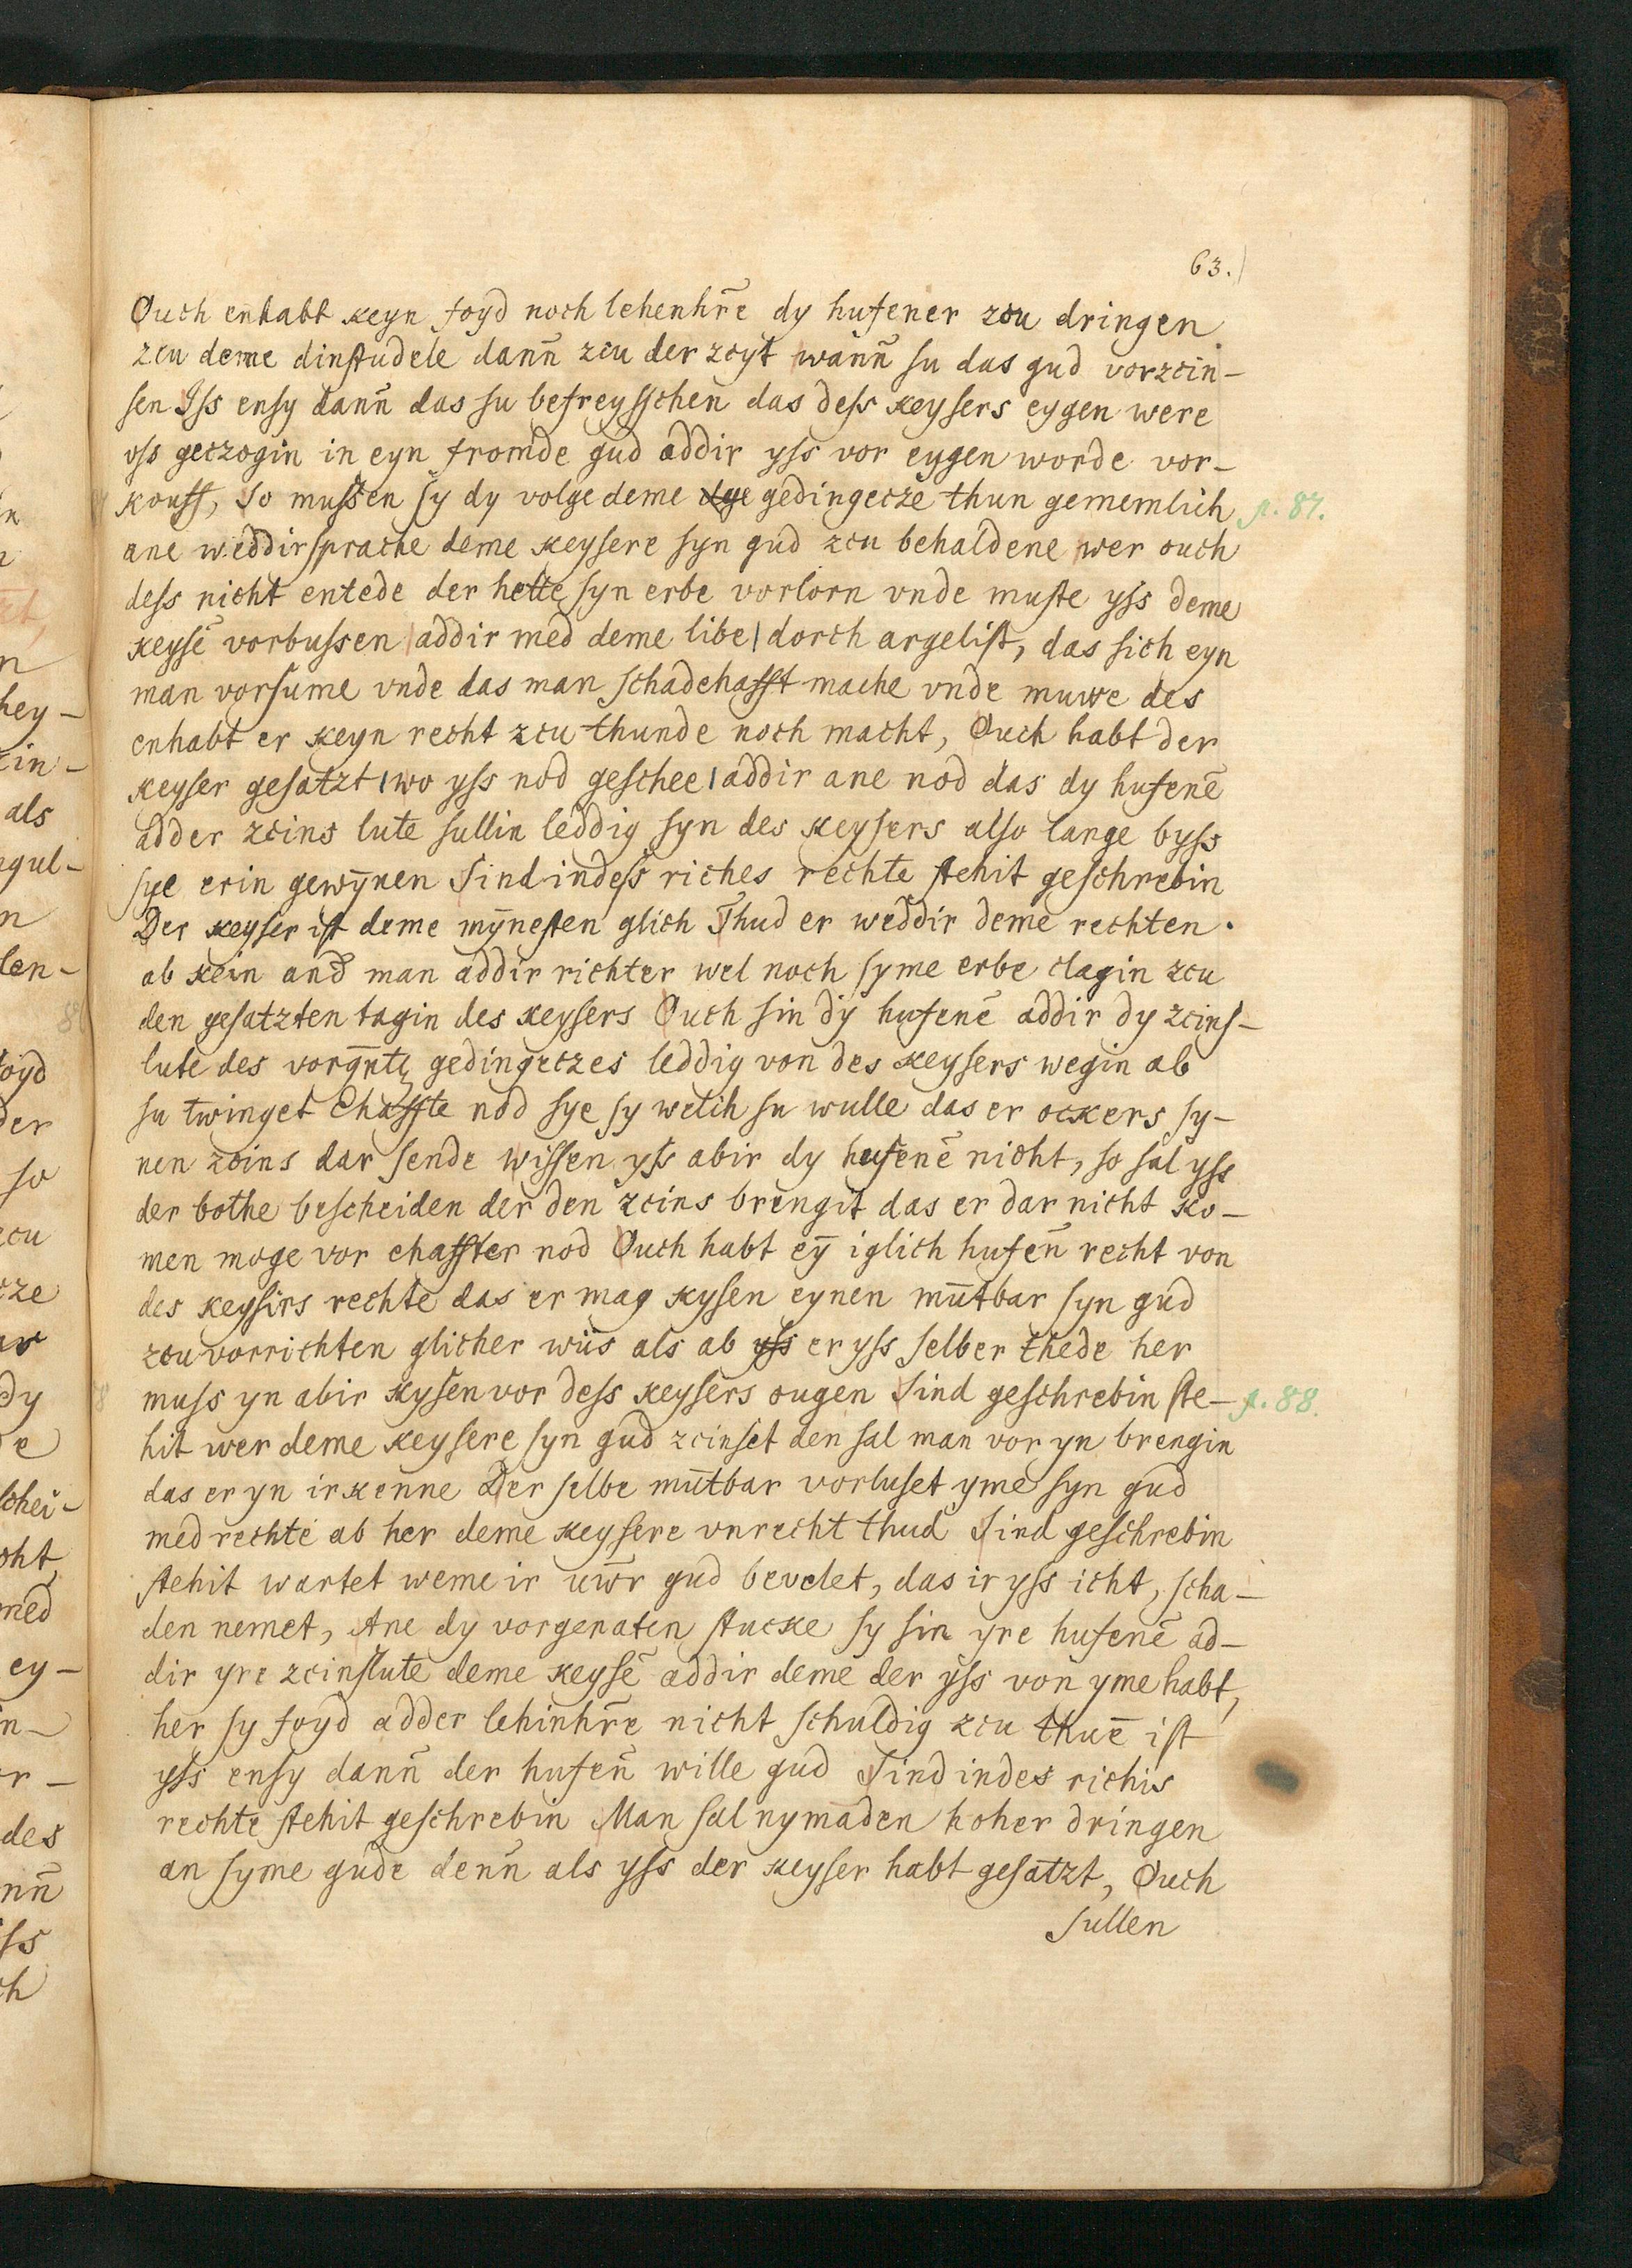 63.
Ouch enhabt keyn foyd noch lehenhr̃e dy hufener zcu dringen
zcu deme dinstudele dann̄ zcu der zcyt wann̄ su das gud vorzcin-
sen Iss ensy dann̄ das su befreysschen das dess keysers eygen were
vss geczogin in eyn fromde gud addir yss vor eygen worde vor-
kouff, So mussen sy dy volge deme gedingecze thun gememlich p. 87.
ane weddirsprache deme keysere syn gud zcu behaldene wer ouch
dess nicht entede der hette syn erbe vorlorn vnde muste yss deme
keysē vorbussen addir med deme libe | dorch argelist, das sich eyn
man vorsume vnde das man schadehafft mache vnde muwe des
enhabt er keyn recht zcu thunde noch macht, Ouch habt der
keyser gesatzt | wo yss nod geschee | addir ane nod das dy hufenē
adder zcins lute sullin leddig syn des keysers also lange byss
sye erin gewȳnen Sind indess riches rechte stehit geschrebin
Der keyser ist deme mȳnesten glich Thud er weddir deme rechten.
ab kein and man addir richter wel noch syme erbe clagin zcu
den gesatzten tagin des keysers Ouch sin dy hufenē addir dy zcins-
lute des gedingeczes leddig von des keysers wegin ab
su twinget Ehaffte nod sye sy welch su wulle das er ockers sy-
nen zcins dar sende wissen yss abir dy hufenē nicht, so sal yss
der bothe bescheiden der den zcins brengit das er dar nicht ko-
men moge vor ehaffter nod Ouch habt eȳ iglich hufen̄ recht von
des keysirs rechte das er mag kysen eynen mūtbar syn gud
zcu vorrichten glicher wiis als ab yss er yss selber thede her
muss yn abir kysen vor dess keysers ougen Sind geschrebin ste- p. 88.
hit wer deme keysere syn gud zcinset den sal man vor yn brengin
das er yn irkenne Der selbe mūtbar vorluset yme syn gud
med rechte ab her deme keysere vnrecht thud Sind geschrebin
stehit wartet weme ir uw̄r gud bevelet, das ir yss icht, scha-
den nemet, Ane dy vorgenaten stucke sy sin yre hufenē ad-
dir yre zcinslute deme keysē addir deme der yss von yme habt,
her sy foyd adder lehinhr̃e nicht schuldig zcu thuē ist
yss ensy dann̄ der hufen̄ wille gud Sind indes richis
rechte stehit geschrebin Man sal nymaden hoher dringen
an syme gude denn̄ als yss der keyser habt gesatzt, Ouch
sullen